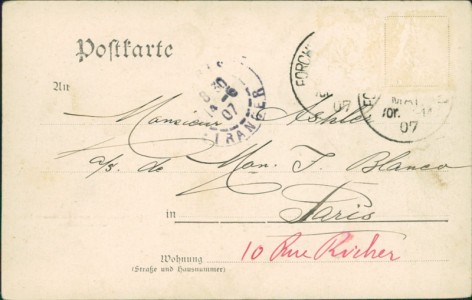 Postkarte
8 30
14-6
07
ETRANGER
FORCH
07
MAI
10V.
07
An
Monsieur Ashley
a/s. de Mon. J. Blanco
in Paris
Wohnung 10 Rue Richer
(Straße und Hausnummer)